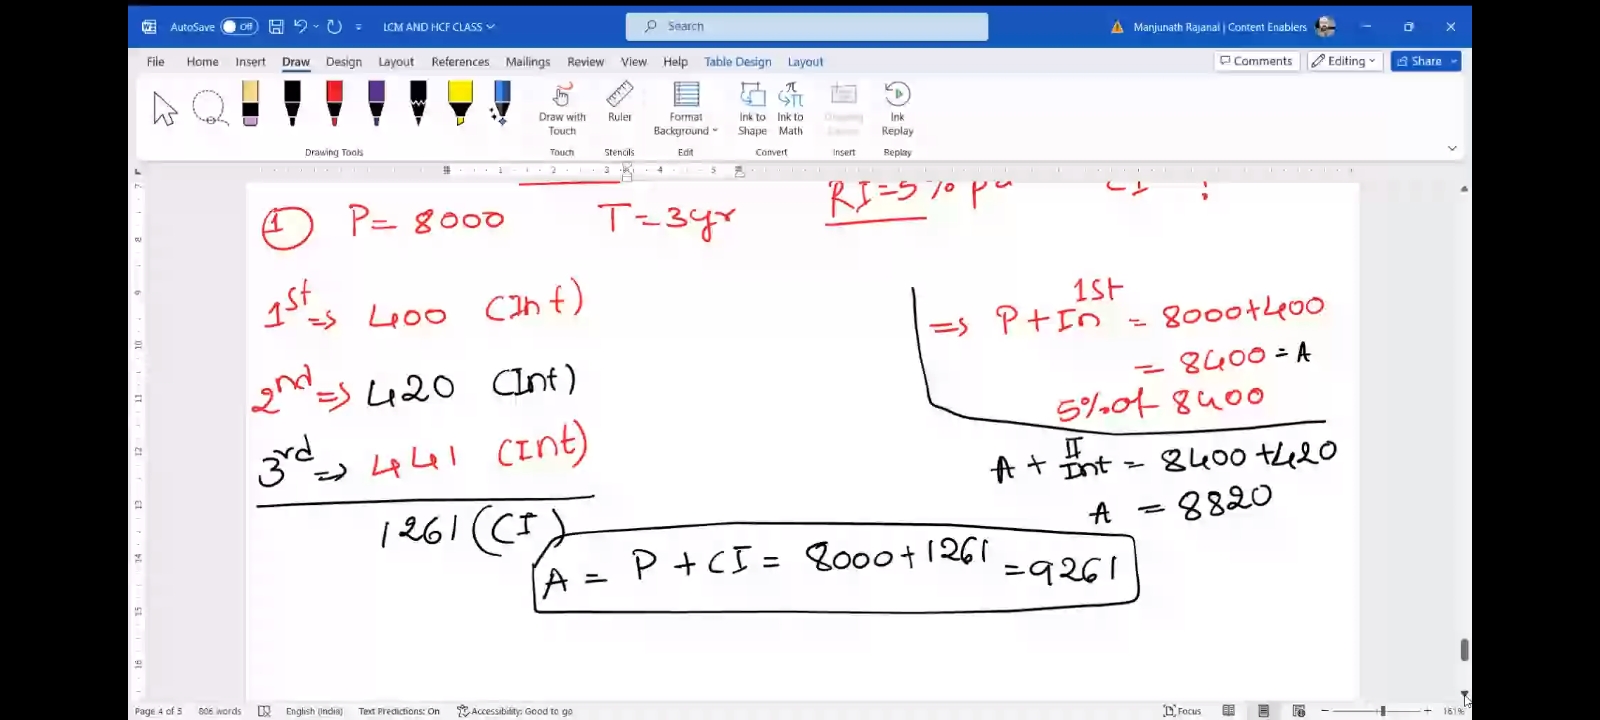 AutoSave Off LCM AND HCF CLASS Search Manjunath Rajanal | Content Enablers
File Home Insert Draw Design Layout References Mailings Review View Help Table Design Layout Comments Editing Share
Draw with Touch Ruler Format Background Ink to Shape Ink to Math Ink Replay
Drawing Tools Touch Stencils Edit Convert Insert Replay
RI=5% pa CI ?
1 P= 8000 T=3yr
1st => 400 (Int)
2nd => 420 (Int)
3rd => 441 (Int)
1261 (CI)
1st
=> P + In = 8000+400
= 8400 = A
5% of 8400
II
A + Int = 8400 +420
A = 8820
A = P + CI = 8000+1261 =9261
Page 4 of 5 806 words English (India) Text Predictions: On Accessibility: Good to go Focus 161%